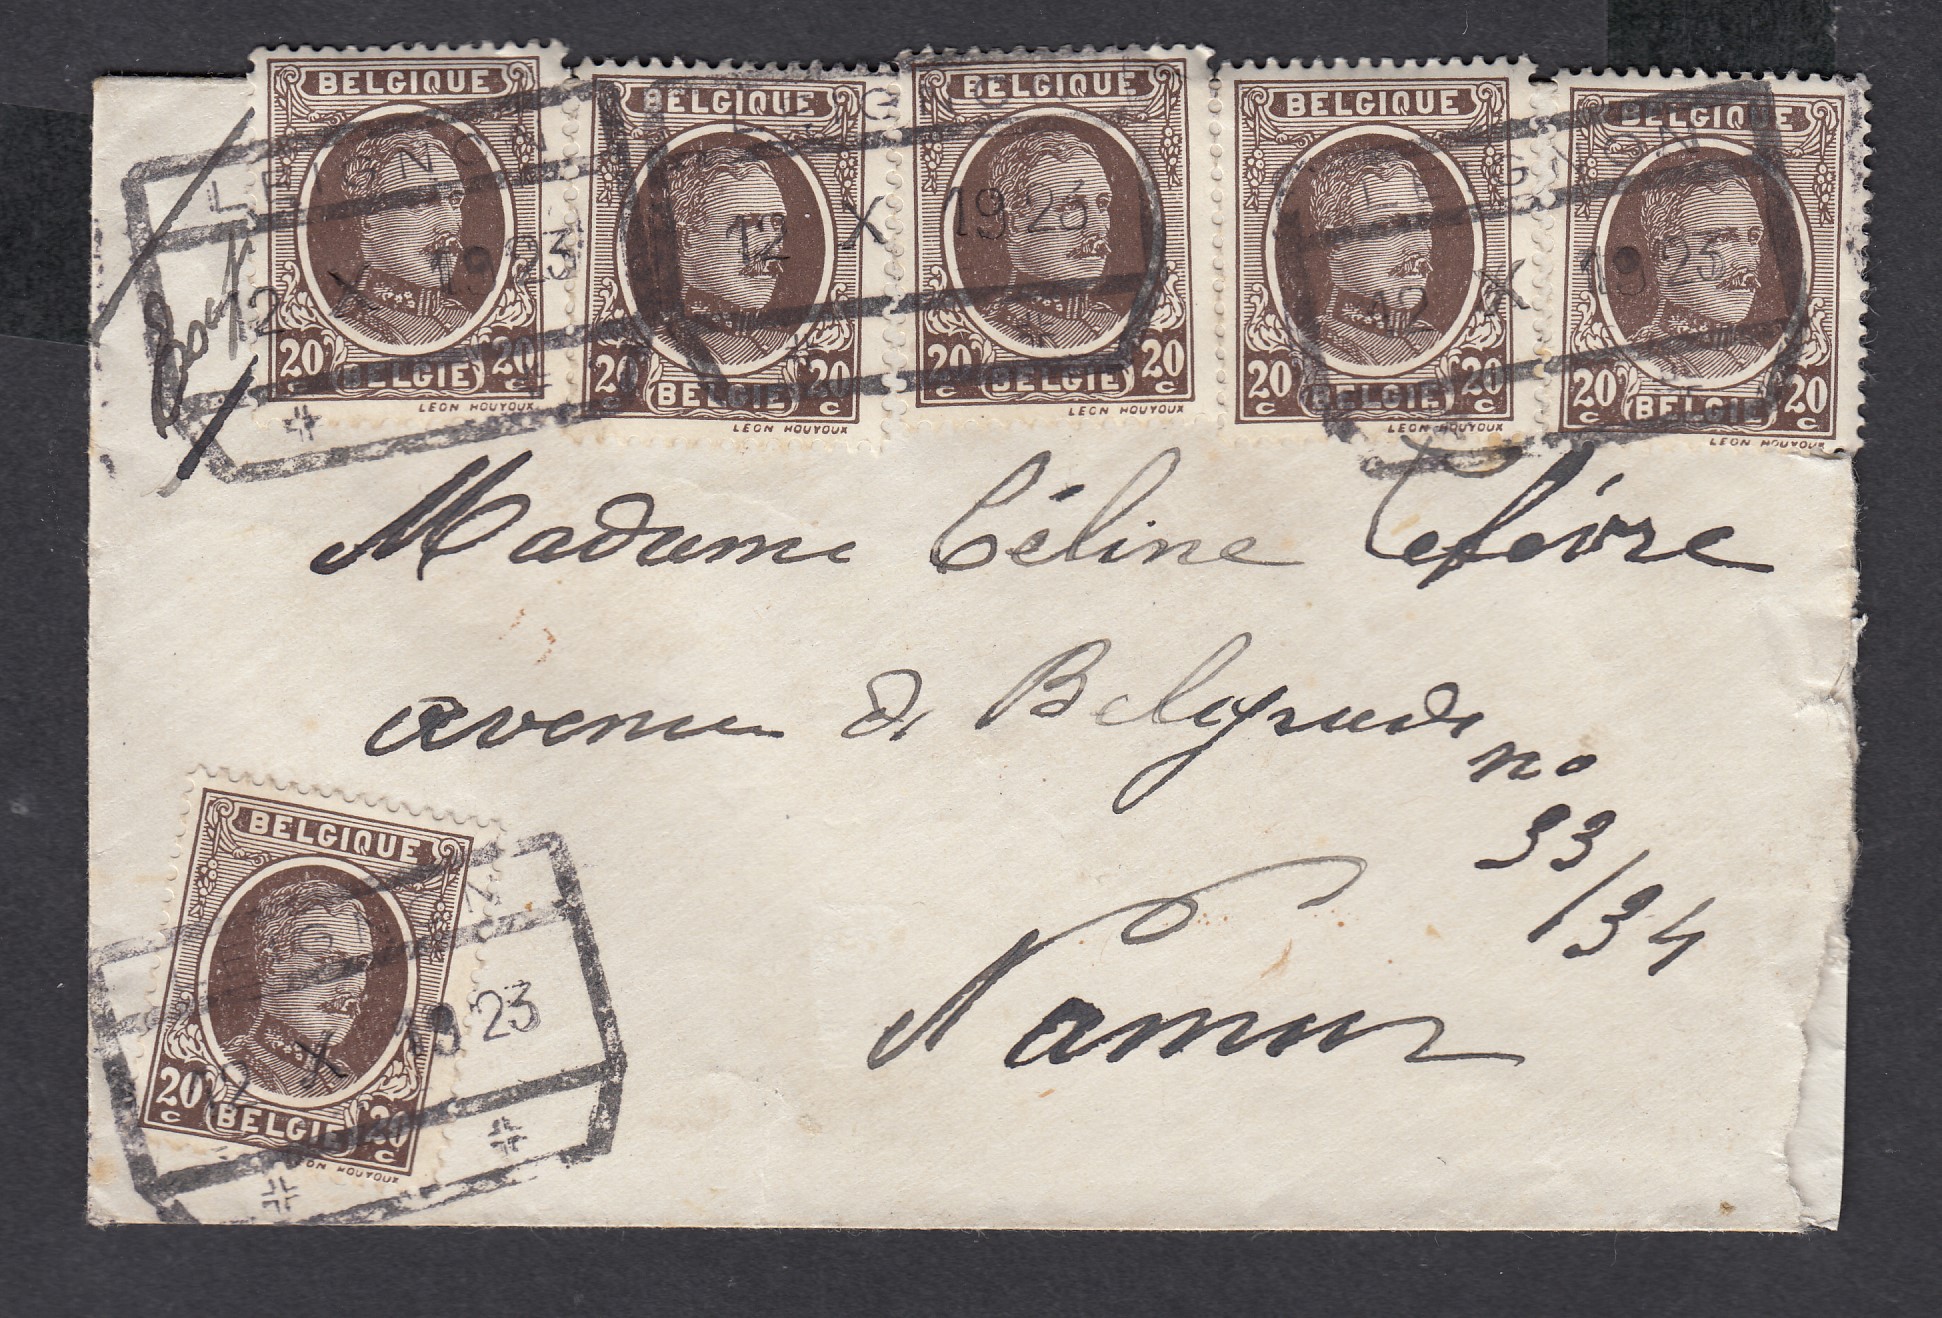 BELGIQUE BELGIQUE BELGIQUE BELGIQUE BELGIQUE
LEIGNON LEIGNON LEIGNON
12 X 1923 12 X 1923 12 X 1923
20 c 20 c 20 c 20 c 20 c 20 c 20 c 20 c 20 c 20 c
BELGIE BELGIE BELGIE BELGIE BELGIE
LEON HOUYOUX LEON HOUYOUX LEON HOUYOUX LEON HOUYOUX LEON HOUYOUX
Madame Céline Lefèvre
avenue de Belgrade
no
33/34
Namur
BELGIQUE
LEIGNON
12 X 1923
20 c 20 c
BELGIE
LEON HOUYOUX